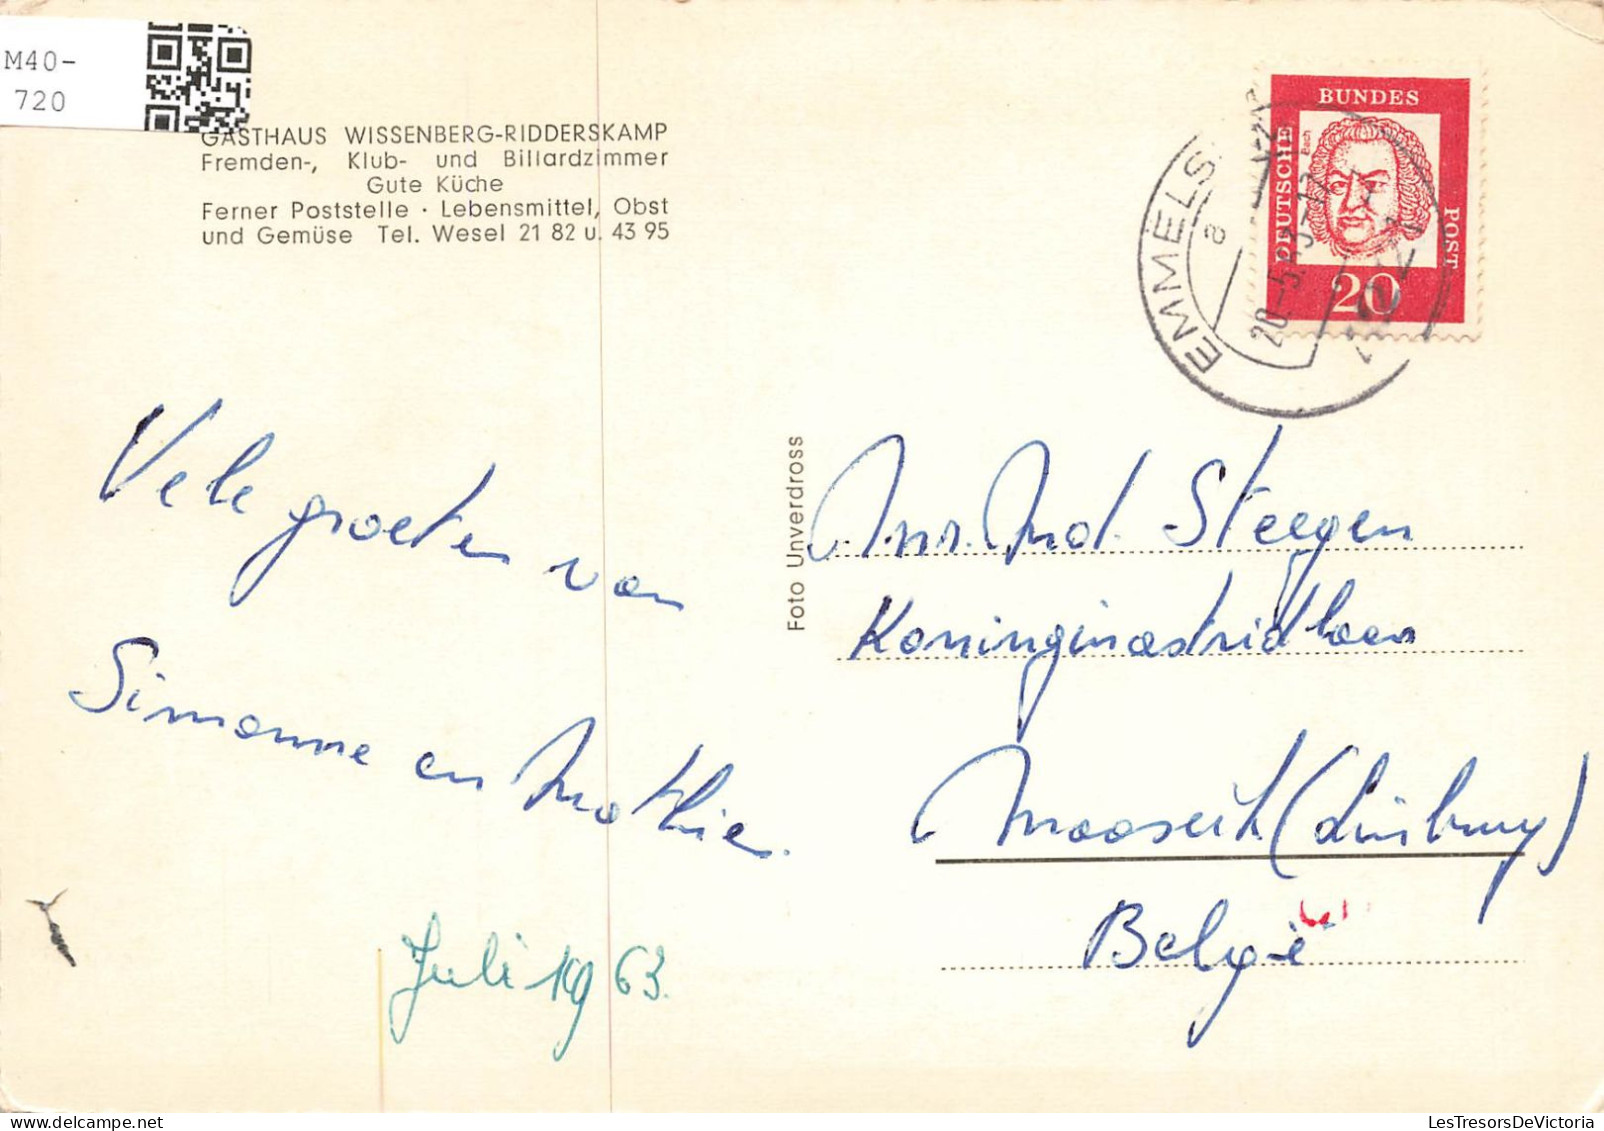 M40-
720
GASTHAUS WISSENBERG-RIDDERSKAMP
Fremden-, Klub- und Billardzimmer
Gute Küche
Ferner Poststelle · Lebensmittel, Obst
und Gemüse Tel. Wesel 21 82 u. 43 95
DEUTSCHE
BUNDES
POST
20
EMMELS
a
Foto Unverdross
Vele groeten van
Simonne en Mathie.
Juli 1963.
Mr. Md. Steegen
Koninginastridlaan
Maaseik (Limburg)
België
LesTresorsDeVictoria